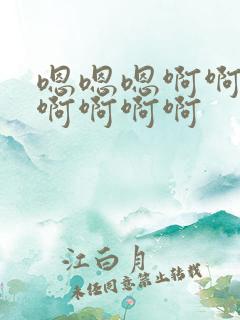 嗯嗯嗯啊啊
啊啊啊啊
江白月
未经同意禁止转载